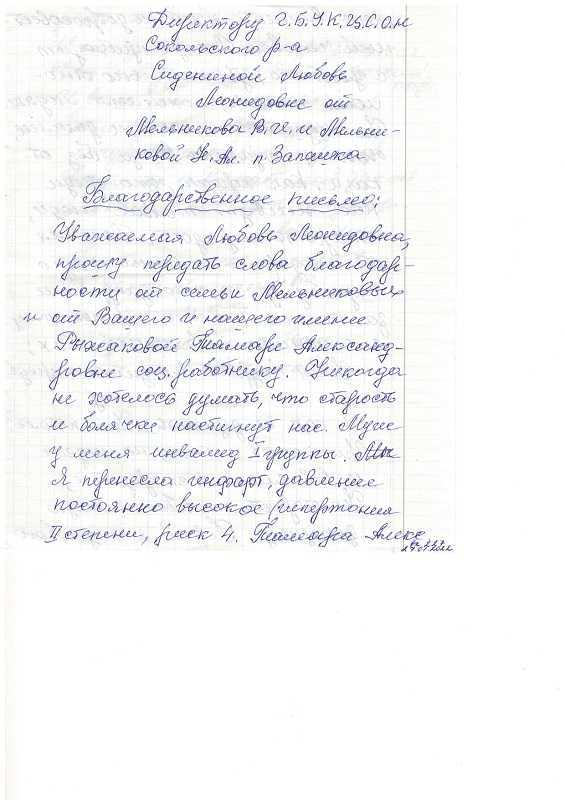 Директору Г.Б.У.К.Ц.С.О.Н
Сокольского р-а
Сидениной Любовь
Леонидовне от
Мельникова В.Ч. и Мельни-
ковой Н. Ал. п. Запашка
Благодарственное письмо:
Уважаемая Любовь Леонидовна,
прошу передать слова благодар-
ности от семьи Мельниковых
и от Вашего и нашего имени
Рыжаковой Тамаре Александ-
ровне соц. работнику. Никогда
не хотелось думать, что старость
и болячки настигнут нас. Муж
у меня инвалид I группы.
Я перенесла инфаркт, давление
постоянно высокое (гипертония
II степени, риск 4. Тамара Алекс